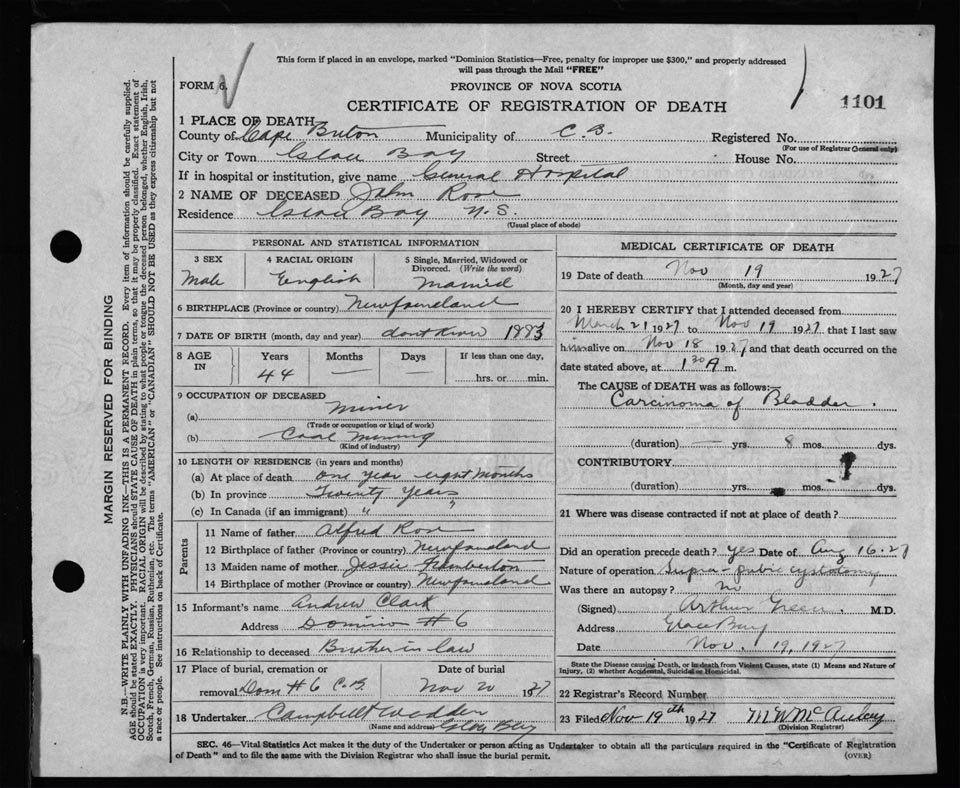 This form if placed in an envelope, marked "Dominion Statistics—Free, penalty for improper use $300," and properly addressed
will pass through the Mail "FREE"
FORM 6.
PROVINCE OF NOVA SCOTIA
CERTIFICATE OF REGISTRATION OF DEATH
1101
1 PLACE OF DEATH
County of Cape Breton Municipality of C. B. Registered No.
(For use of Registrar General only)
City or Town Glace Bay Street House No.
If in hospital or institution, give name General Hospital
2 NAME OF DECEASED John Rose
Residence Glace Bay N.S.
(Usual place of abode)
PERSONAL AND STATISTICAL INFORMATION
3 SEX Male
4 RACIAL ORIGIN English
5 Single, Married, Widowed or Divorced. (Write the word) Married
6 BIRTHPLACE (Province or country) Newfoundland
7 DATE OF BIRTH (month, day and year) dont know 1883
8 AGE IN Years Months Days If less than one day,
44 — hrs. or min.
9 OCCUPATION OF DECEASED
(a) Miner
(Trade or occupation or kind of work)
(b) Coal Mining
(Kind of industry)
10 LENGTH OF RESIDENCE (in years and months)
(a) At place of death one year eight months
(b) In province Twenty Years
(c) In Canada (if an immigrant) " "
Parents
11 Name of father Alfred Rose
12 Birthplace of father (Province or country) Newfoundland
13 Maiden name of mother Jessie
14 Birthplace of mother (Province or country) Newfoundland
15 Informant's name Andrew Clark
Address Dominion #6
16 Relationship to deceased Brother in law
17 Place of burial, cremation or Date of burial
removal Dom #6 C.B. Nov 20 1927
18 Undertaker Campbell
(Name and address) Glace Bay
MEDICAL CERTIFICATE OF DEATH
19 Date of death Nov 19 1927
(Month, day and year)
20 I HEREBY CERTIFY that I attended deceased from
March 21 1927 to Nov 19 1927 that I last saw
him alive on Nov 18 1927 and that death occurred on the
date stated above, at 1 30 A m.
The CAUSE OF DEATH was as follows:
Carcinoma of Bladder.
(duration) — yrs. 8 mos. dys.
CONTRIBUTORY
(duration) yrs. mos. dys.
21 Where was disease contracted if not at place of death?
Did an operation precede death? yes Date of Aug 16-27
Nature of operation Supra-pubic cystotomy
Was there an autopsy? no
(Signed) Arthur Green M.D.
Address Glace Bay
Date Nov. 19, 1927
State the Disease causing Death, or in death from Violent Causes, state (1) Means and Nature
of Injury, (2) whether Accidental, Suicidal or Homicidal.
22 Registrar's Record Number
23 Filed Nov 19th 1927
(Division Registrar)
SEC. 46—Vital Statistics Act makes it the duty of the Undertaker or person acting as Undertaker to obtain all the particulars required in the "Certificate of Registration
of Death" and to file the same with the Division Registrar who shall issue the burial permit.
(OVER)
MARGIN RESERVED FOR BINDING
N.B.—WRITE PLAINLY WITH UNFADING INK—THIS IS A PERMANENT RECORD. Every item of information should be carefully supplied.
AGE should be stated EXACTLY. PHYSICIANS should STATE CAUSE OF DEATH in plain terms, so that it may be properly classified. Exact statement of
OCCUPATION is very important. RACIAL ORIGIN will be described by stating to what people or tongue the deceased person belonged, whether English, Irish,
Scotch, French, German, Russian, Ruthenian, etc. The terms "AMERICAN" or "CANADIAN" SHOULD NOT BE USED as they express citizenship but not
a race or people. See instructions on back of Certificate.